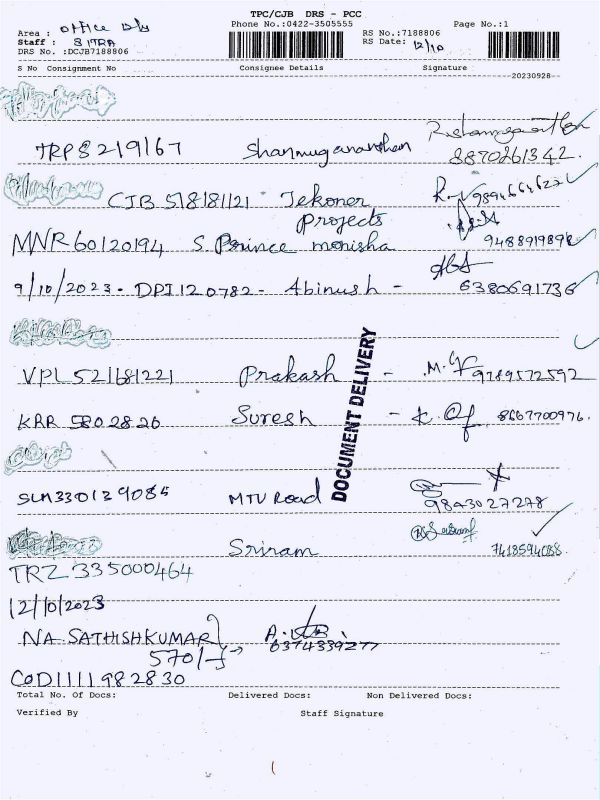 TPC/CJB DRS - PCC
Area : Office Dly
Phone No.:0422-3505555
Page No.:1
Staff : SITRA
RS No.:7188806
RS Date: 12/10
DRS No. :DCJB7188806
S No Consignment No Consignee Details Signature
20230928
TRP58219167 Shanmuganandhan
8870261342.
CJB 518181121 Tekoner 9894664622
Projects
MNR60120194 S. Prince monisha 9488919898
9/10/2023 - DPI120782 - Abinush - 6380691736
VPL521681221 Prakash - M. 9789572592
DOCUMENT DELIVERY
KRR 5802826 Suresh - K. 8667700976.
SLM330129085 MTU Road 9843027278
Sriram 7418594088
TRZ 335000464
12/10/2023
NA. SATHISHKUMAR A.
570/- 6374339277
COD1111982830
Total No. Of Docs: Delivered Docs: Non Delivered Docs:
Verified By Staff Signature